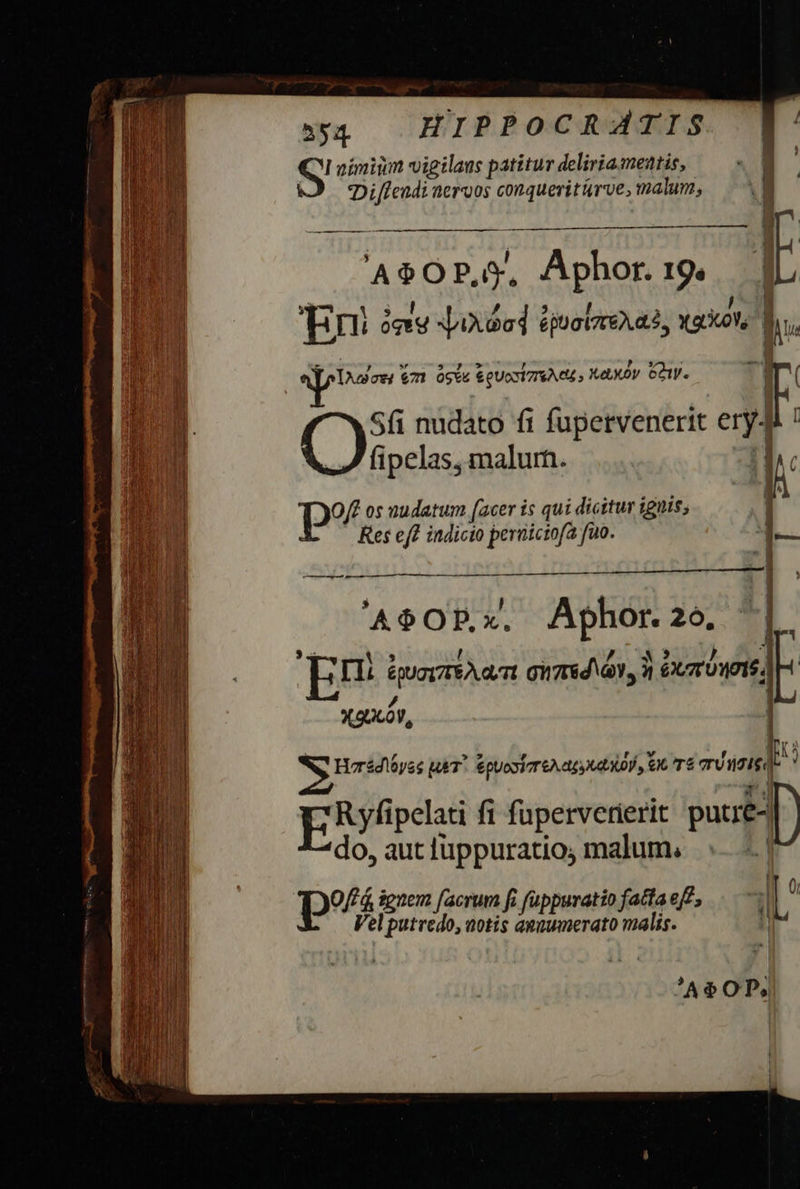 254 HIPPOCRATIS
SI nimiùm vigilans patitur deliria mentis,
Diſtendi nervos conqueritúrve, malum,
ἈΦΟΡ. ιθ'. Aphor. 19.
Ἐπὶ ὀστέȣ ψιλώσει ἐρυσίπελας, κακόν.
Ψιλώσει ἐπὶ ὀστέȣ ἐρυσίπελας, κακόν ἐστιν.
OSſi nudato ſi ſupervenerit ery-
ſipelas, malum.
POſt os nudatum ſacer is qui dicitur ignis,
Res eſt indicio pernicioſa ſuo.
ἈΦΟΡ. κ'. Aphor. 20,
Ἐπὶ ἐρυσιπέλατι σηπεδὼν, ἢ ἐκπύησις,
κακόν,
ΣΗπεδόνες μετ' ἐρυσίπελας κακόν, ἔκ τε πύησις
ERyſipelati ſi ſupervenerit putre-
do, aut ſuppuratio, malum.
POſt ignem ſacrum ſi ſuppuratio facta eſt,
Vel putredo, notis annumerato malis.
ἈΦΟΡ.